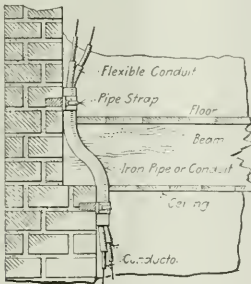 Flexible Conduit
Pipe Strap
Floor
Beam
Iron Pipe or Conduit
Ceiling
Conducto